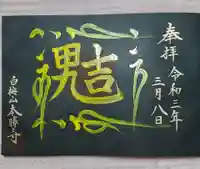 奉拝
令和三年
三月八日
吉
白梅山本勝寺